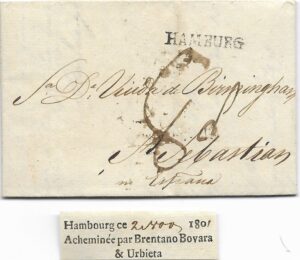 HAMBURG
Sra Da Viuda de Birmingham
8
Sn Sebastian
en España
Hambourg ce 2 Nov 1801
Acheminée par Brentano Bovara
& Urbieta